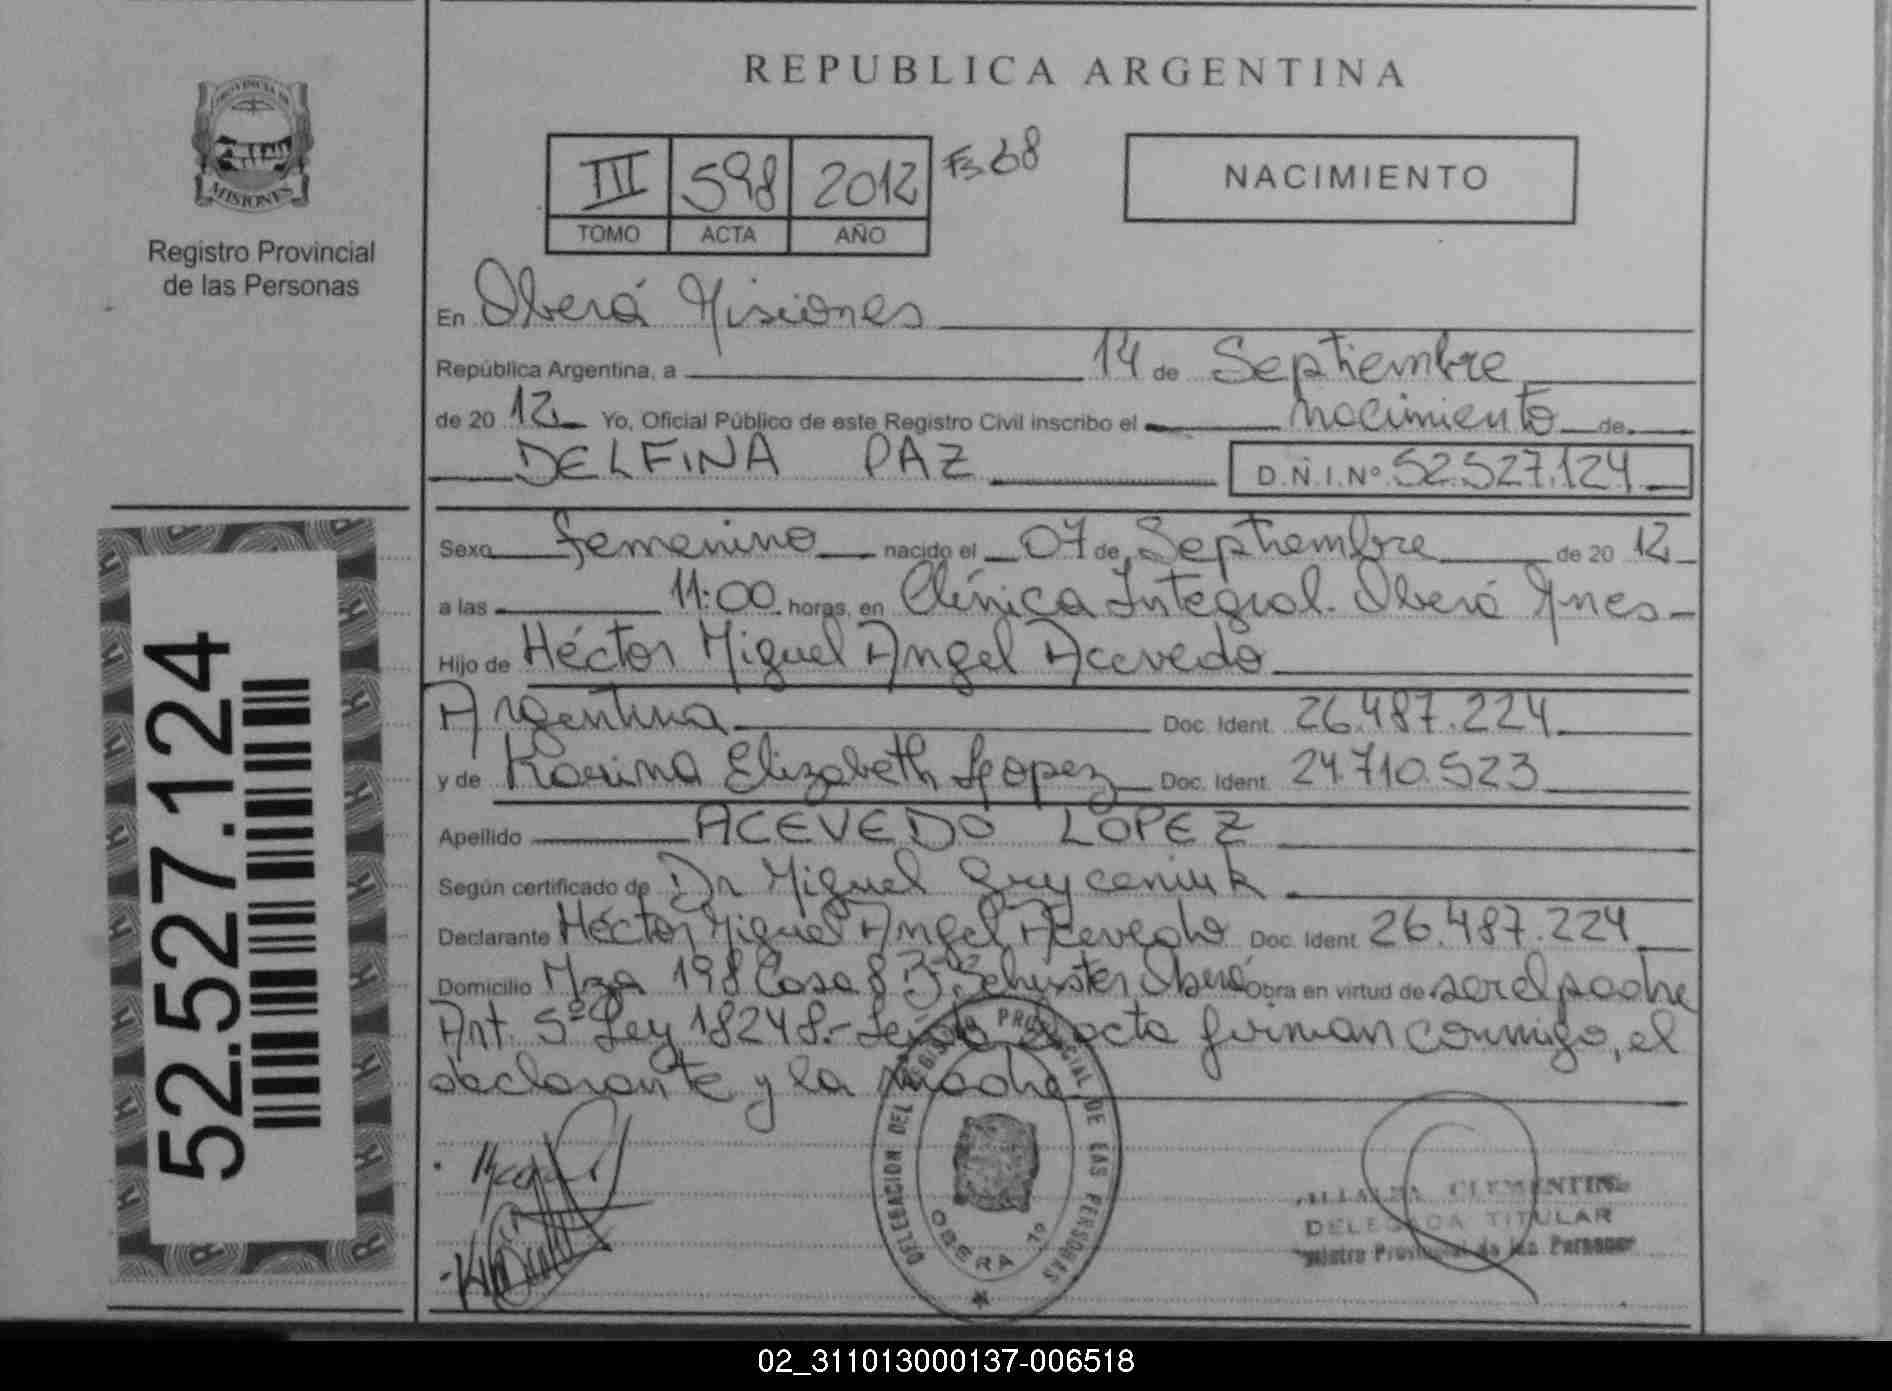 PROVINCIA DE
MISIONES
Registro Provincial
de las Personas
REPUBLICA ARGENTINA
III 598 2012 Fs 68
TOMO ACTA AÑO
NACIMIENTO
En Oberá Misiones
República Argentina, a 14 de Septiembre
de 20 12 Yo, Oficial Público de este Registro Civil inscribo el nacimiento de
DELFINA PAZ D.N.I.Nº 52.527.124
Sexo femenino nacido el 07 de Septiembre de 20 12
a las 11:00 horas, en Clínica Integral. Oberá Mnes
Hijo de Héctor Miguel Angel Acevedo
Argentina Doc. Ident. 26.487.224
y de Karina Elizabeth Lopez Doc. Ident. 24.710.523
Apellido ACEVEDO LOPEZ
Según certificado de Dr Miguel Gryceniuk
Declarante Héctor Miguel Angel Acevedo Doc. Ident 26.487.224
Domicilio Mza 198 Casa 8 Bº Schuster Oberá Obra en virtud de ser el padre
Art. 5º Ley 18248.- Leída el acta firman conmigo, el
declarante y la madre
52.527.124
DELEGACION DEL REGISTRO PROVINCIAL DE LAS PERSONAS
OBERA
CLEMENTINA
DELEGADA TITULAR
Registro Provincial de las Personas
02_311013000137-006518